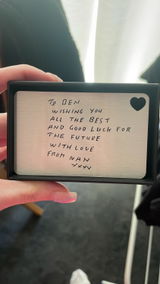 To BEN
WISHING YOU
ALL THE BEST
AND GOOD LUCK FOR
THE FUTURE
WITH LOVE
FROM NAN
xxxx